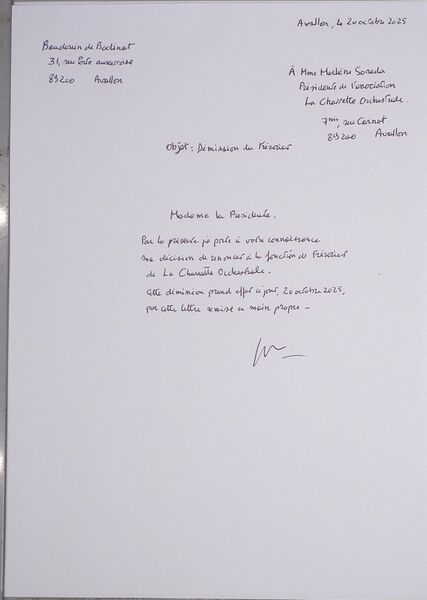 Avallon, le 20 octobre 2025
Baudouin de Bodinat
31, rue Porte auxerroise
89200 Avallon
À Mme Marlène
Présidente de l'association
La Charrette Orchestrale.
7 bis, rue Carnot
89200 Avallon
Objet : Démission du Trésorier
Madame la Présidente,
Par la présente je porte à votre connaissance
ma décision de renoncer à la fonction de Trésorier
de La Charrette Orchestrale.
Cette démission prend effet à jour, 20 octobre 2025,
par cette lettre remise en main propre -